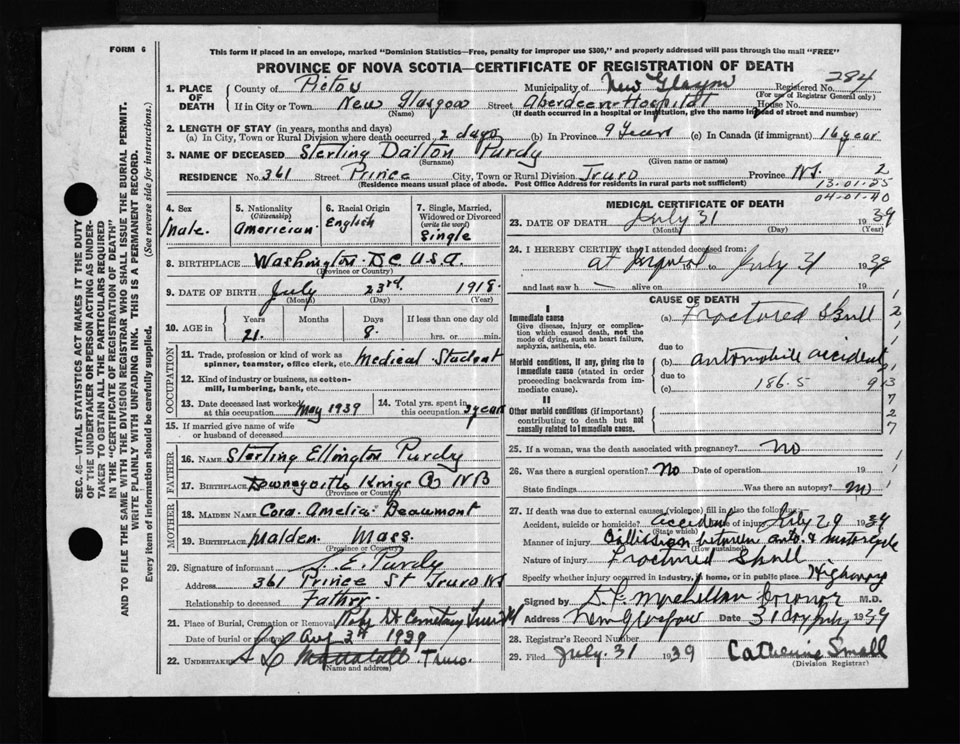 FORM 6
This form if placed in an envelope, marked "Dominion Statistics—Free, penalty for improper use $300," and properly addressed will pass through the mail "FREE"
PROVINCE OF NOVA SCOTIA—CERTIFICATE OF REGISTRATION OF DEATH
SEC. 46—VITAL STATISTICS ACT MAKES IT THE DUTY
OF THE UNDERTAKER OR PERSON ACTING AS UNDER-
TAKER TO OBTAIN ALL THE PARTICULARS REQUIRED
IN THE "CERTIFICATE OF REGISTRATION OF DEATH"
AND TO FILE THE SAME WITH THE DIVISION REGISTRAR WHO SHALL ISSUE THE BURIAL PERMIT.
WRITE PLAINLY WITH UNFADING INK. THIS IS A PERMANENT RECORD.
Every item of information should be carefully supplied. (See reverse side for instructions.)
1. PLACE OF DEATH County of Pictou Municipality of New Glasgow Registered No. 284
(For use of Registrar General only)
If in City or Town New Glasgow Street Aberdeen Hospital House No.
(Name) (If death occurred in a hospital or institution, give the name instead of street and number)
2. LENGTH OF STAY (in years, months and days)
(a) In City, Town or Rural Division where death occurred 2 days (b) In Province 9 Years (c) In Canada (if immigrant) 16 year
3. NAME OF DECEASED Sterling Dalton Purdy
(Surname) (Given name or names)
RESIDENCE No. 361 Street Prince City, Town or Rural Division Truro Province N.S. 2
(Residence means usual place of abode. Post Office Address for residents in rural parts not sufficient) 13.01.25
04.01.40
4. Sex Male.
5. Nationality (Citizenship) American
6. Racial Origin English
7. Single, Married, Widowed or Divorced (write the word) Single
8. BIRTHPLACE Washington D.C. U.S.A.
(Province or Country)
9. DATE OF BIRTH July 23rd. 1918.
(Month) (Day) (Year)
10. AGE in Years Months Days If less than one day old
21. 8. hrs. or min.
OCCUPATION
11. Trade, profession or kind of work as spinner, teamster, office clerk, etc. Medical Student
12. Kind of industry or business, as cotton-mill, lumbering, bank, etc.
13. Date deceased last worked at this occupation May 1939
14. Total yrs. spent in this occupation 3 years
15. If married give name of wife or husband of deceased
FATHER
16. NAME Sterling Ellington Purdy
17. BIRTHPLACE Kings Co NB
(Province or Country)
MOTHER
18. MAIDEN NAME Cora Amelia Beaumont
19. BIRTHPLACE Malden. Mass.
(Province or Country)
20. Signature of informant S. E. Purdy
Address 361 Prince St Truro NS
Relationship to deceased Father
21. Place of Burial, Cremation or Removal Robie St Cemetery Truro NS
Date of burial or removal Aug 2nd 1939
22. UNDERTAKER Mattatall. Truro.
(Name and address)
MEDICAL CERTIFICATE OF DEATH
23. DATE OF DEATH July 31 1939
(Month) (Day) (Year)
24. I HEREBY CERTIFY that I attended deceased from:
at Inquest to July 31 1939
and last saw h— alive on 19
CAUSE OF DEATH
I
Immediate cause
Give disease, injury or complication which caused death, not the mode of dying, such as heart failure, asphyxia, asthenia, etc.
(a) Fractured Skull
due to
Morbid conditions, if any, giving rise to immediate cause (stated in order proceeding backwards from immediate cause).
(b) automobile accident
due to
(c) 186.5
II
Other morbid conditions (if important) contributing to death but not causally related to immediate cause.
25. If a woman, was the death associated with pregnancy? No
26. Was there a surgical operation? No Date of operation 19
State findings Was there an autopsy? No
27. If death was due to external causes (violence) fill in also the following:
Accident, suicide or homicide? accident Date of injury July 29 1939
(State which)
Manner of injury Collission between auto. & motorcycle
(How sustained)
Nature of injury Fractured Skull
Specify whether injury occurred in industry, in home, or in public place Highway
Signed by Coronor M.D.
Address New Glasgow Date 31 day July 1939
28. Registrar's Record Number
29. Filed July. 31 1939 Catherine Small
(Division Registrar)